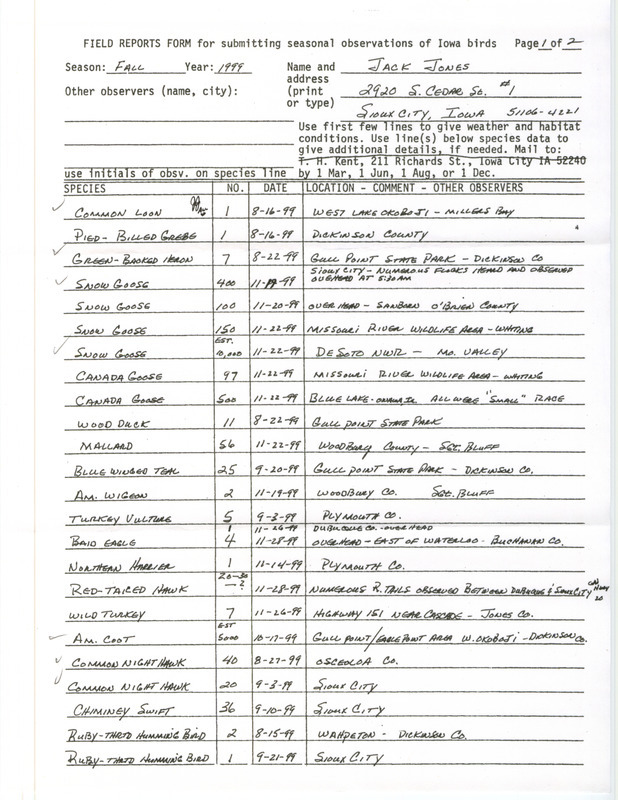 FIELD REPORTS FORM for submitting seasonal observations of Iowa birds Page 1 of 2
Season: FALL Year: 1999 Name and JACK JONES
address
Other observers (name, city): (print 2920 S. CEDAR ST. #1
or type)
SIOUX CITY, IOWA 51106-4221
Use first few lines to give weather and habitat
conditions. Use line(s) below species data to
give additional details, if needed. Mail to:
T. H. Kent, 211 Richards St., Iowa City IA 52240
use initials of obsv. on species line by 1 Mar, 1 Jun, 1 Aug, or 1 Dec.
SPECIES NO. DATE LOCATION - COMMENT - OTHER OBSERVERS
COMMON LOON 1 8-16-99 WEST LAKE OKOBOJI - MILLERS BAY
PIED-BILLED GREBE 1 8-16-99 DICKINSON COUNTY
GREEN-BACKED HERON 7 8-22-99 GULL POINT STATE PARK - DICKINSON CO
SIOUX CITY - NUMEROUS FLOCKS HEARD AND OBSERVED
SNOW GOOSE 400 11-19-99 OVERHEAD AT 5:30AM
SNOW GOOSE 100 11-20-99 OVER HEAD - SANBORN O'BRIEN COUNTY
SNOW GOOSE 150 11-22-99 MISSOURI RIVER WILDLIFE AREA - WHITING
SNOW GOOSE EST. 10,000 11-22-99 DESOTO NWR - MO. VALLEY
CANADA GOOSE 97 11-22-99 MISSOURI RIVER WILDLIFE AREA - WHITING
CANADA GOOSE 500 11-22-99 BLUE LAKE - ONAWA, IA. ALL WERE "SMALL" RACE
WOOD DUCK 11 8-22-99 GULL POINT STATE PARK
MALLARD 56 11-22-99 WOODBURY COUNTY - SGT. BLUFF
BLUE WINGED TEAL 25 9-20-99 GULL POINT STATE PARK - DICKINSON CO.
AM. WIGEON 2 11-19-99 WOODBURY CO. SGT. BLUFF
TURKEY VULTURE 5 9-3-99 PLYMOUTH CO.
1 11-26-99 DUBUQUE CO. - OVERHEAD
BALD EAGLE 4 11-28-99 OVERHEAD - EAST OF WATERLOO - BUCHANAN CO.
NORTHERN HARRIER 1 11-14-99 PLYMOUTH CO.
RED-TAILED HAWK 20-30 -? 11-28-99 NUMEROUS R. TAILS OBSERVED BETWEEN DUBUQUE & SIOUX CITY ON HWY 20
WILD TURKEY 7 11-26-99 HIGHWAY 151 NEAR CASCADE - JONES CO.
AM. COOT EST 5000 10-17-99 GULL POINT/EAGLE POINT AREA W. OKOBOJI - DICKINSON CO.
COMMON NIGHTHAWK 40 8-27-99 OSCEOLA CO.
COMMON NIGHTHAWK 20 9-3-99 SIOUX CITY
CHIMINEY SWIFT 36 9-10-99 SIOUX CITY
RUBY-THRTD HUMMING BIRD 2 8-15-99 WAHPETON - DICKINSON CO.
RUBY-THRTD HUMMING BIRD 1 9-21-99 SIOUX CITY